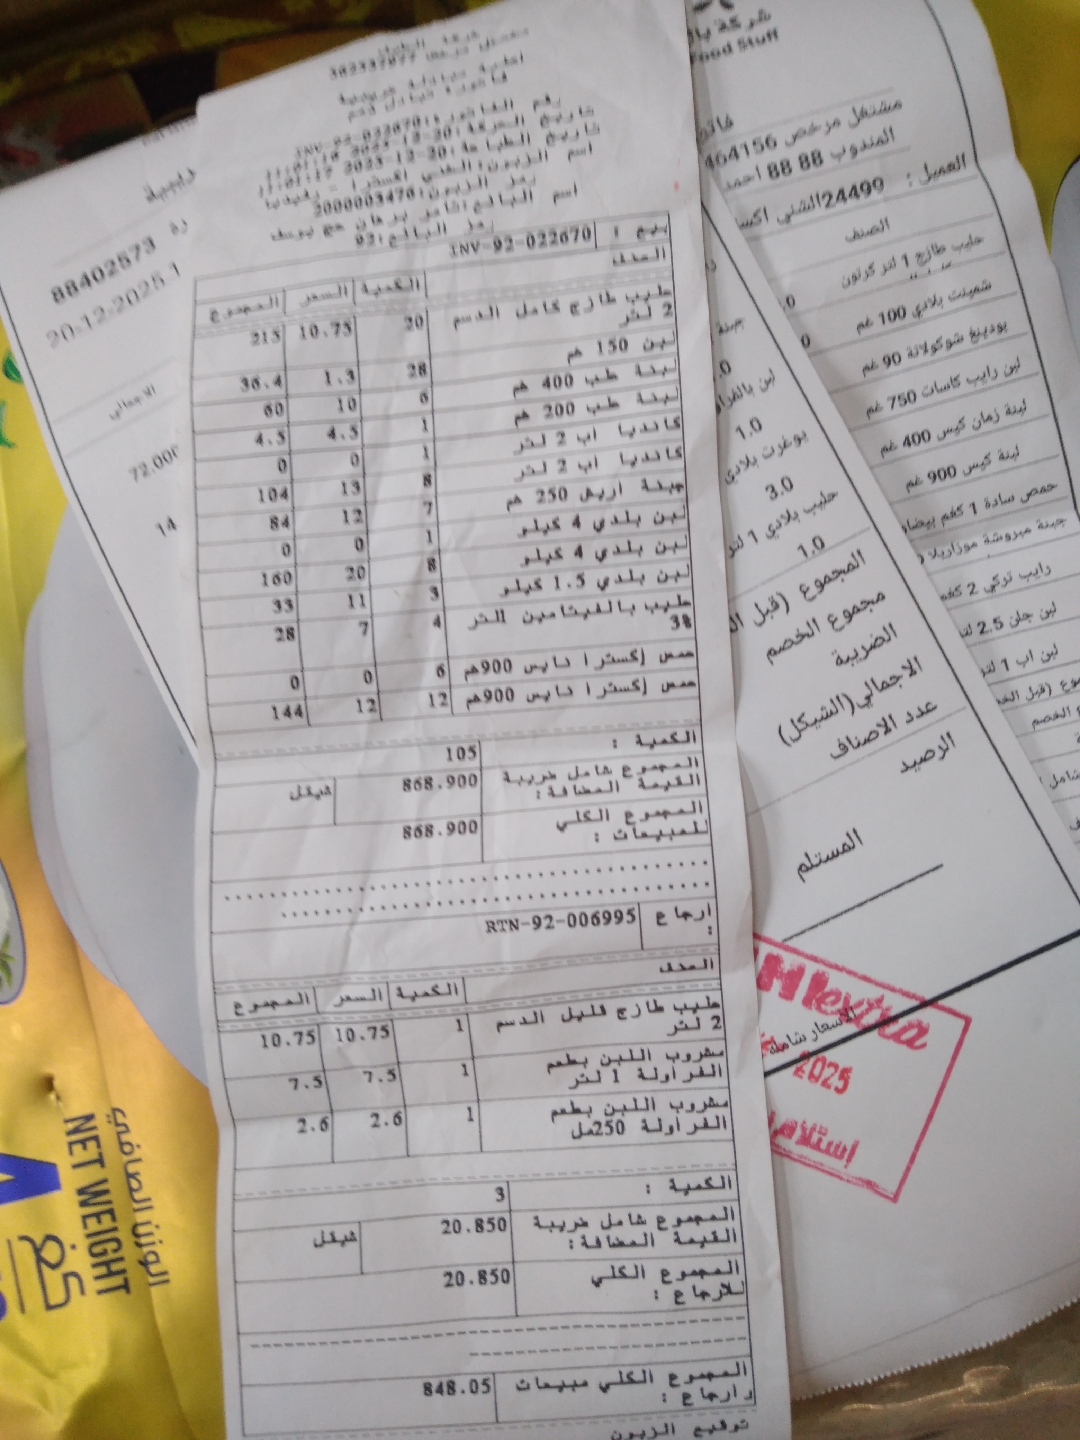 شركة الطيف
مشتغل مرخص 562337877
اصلية مبادلة ضريبية
فاتورة تبادل دائم
رقم الفاتورة: INV-92-022670
اسم الزبون: الشني اكسترا - رفيديا
رمز الزبون: 2000003470
اسم البائع: ثامر برهان حج يوسف
رمز البائع: 92
بيع : INV-92-022670
الصنف
الكمية السعر المجموع
حليب طازج كامل الدسم 2 لتر 20 10.75 215
لبن 150 غم 28 1.3 36.4
لبنة طب 400 غم 6 10 60
لبنة طب 200 غم 1 4.5 4.5
كانديا اب 2 لتر 1 0 0
كانديا اب 2 لتر 8 13 104
جبنة اريش 250 غم 7 12 84
لبن بلدي 4 كيلو 1 0 0
لبن بلدي 4 كيلو 8 20 160
لبن بلدي 1.5 كيلو 3 11 33
حليب بالفيتامين 1لتر 3% 4 7 28
حمص إكسترا نايس 900غم 6 0 0
حمص إكسترا نايس 900غم 12 12 144
الكمية : 105
المجموع شامل ضريبة القيمة المضافة: 868.900 شيقل
المجموع الكلي للمبيعات : 868.900
ارجاع : RTN-92-006995
الصنف
الكمية السعر المجموع
حليب طازج قليل الدسم 2 لتر 1 10.75 10.75
مشروب اللبن بطعم الفراولة 1 لتر 1 7.5 7.5
مشروب اللبن بطعم الفراولة 250مل 1 2.6 2.6
الكمية : 3
المجموع شامل ضريبة القيمة المضافة: 20.850 شيقل
المجموع الكلي للارجاع : 20.850
المجموع الكلي مبيعات وارجاع : 848.05
توقيع الزبون
88402573
20-12-2025
الاجمالي
72.00
14
لبن بالفراو
1.0
يوغرت بلادي
3.0
حليب بلادي 1 لتر
1.0
المجموع (قبل ال
مجموع الخصم
الضريبة
الاجمالي(الشيكل)
عدد الاصناف
الرصيد
المستلم
الاسعار شاملة
شركة
Food Stuff
مشتغل مرخص 464156
المندوب 88 88 احمد
العميل : 24499الشني اكس
الصنف
حليب طازج 1 لتر كرتون
شمينت بلادي 100 غم
بودينغ شوكولاتة 90 غم
لبن رايب كاسات 750 غم
لبنة زمان كيس 400 غم
لبنة كيس 900 غم
حمص سادة 1 كغم بيضا
جبنة مبروشة موزاريلا
رايب تركي 2 كغم
لبن جلن 2.5 لت
لبن اب 1 لتر
extra
2025
إستلام
الوزن الصافي
NET WEIGHT
كغ